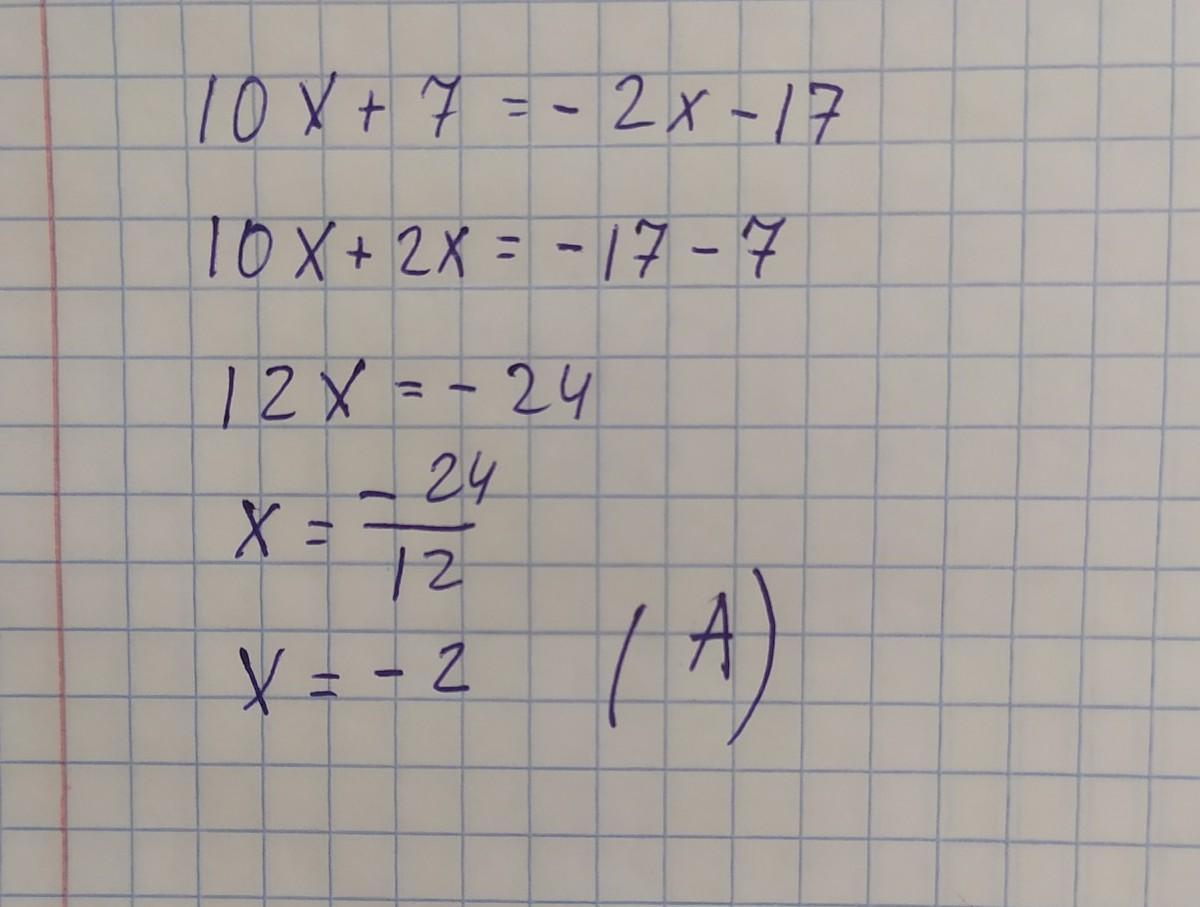 10x + 7 = - 2x - 17
10x + 2x = - 17 - 7
12x = - 24
x = - 24 / 12
x = - 2 (A)